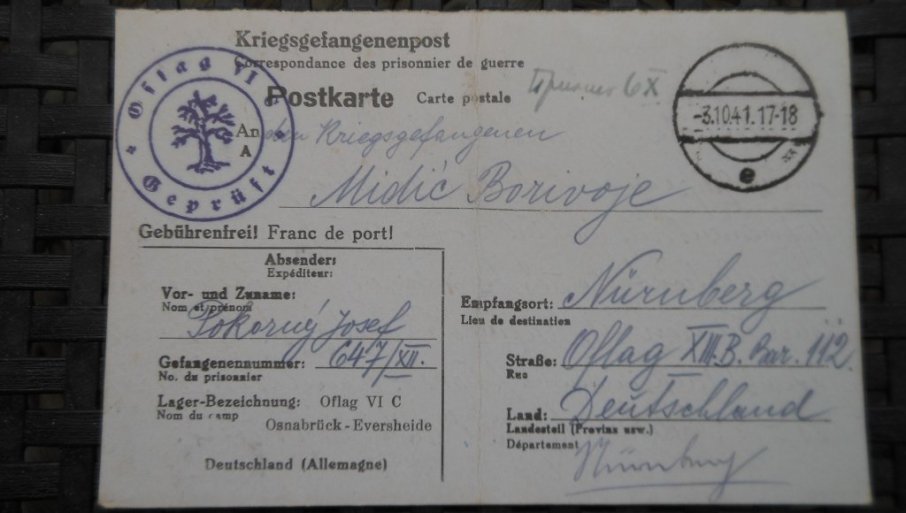 Kriegsgefangenenpost
Correspondance des prisonnier de guerre
Postkarte Carte postale
6X
-3.10.41.17-18
e
Oflag VI
Geprüft
An den Kriegsgefangenen
A
Midić Borivoje
Gebührenfrei! Franc de port!
Absender:
Expéditeur:
Vor- und Zuname:
Nom et prénom
Pokorný Josef
Gefangenennummer: 647/XII.
No. du prisonnier
Lager-Bezeichnung: Oflag VI C
Nom du camp
Osnabrück-Eversheide
Deutschland (Allemagne)
Empfangsort: Nürnberg
Lieu de destination
Straße: Oflag XIII.B. Bar. 112.
Rue
Land: Deutschland
Landesteil (Provinz usw.)
Département
Nürnberg